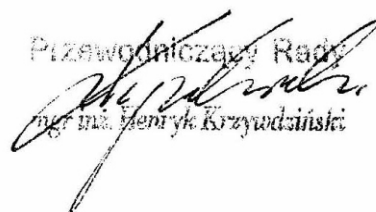 Przewodniczący Rady
mgr inż. Henryk Krzywdziński